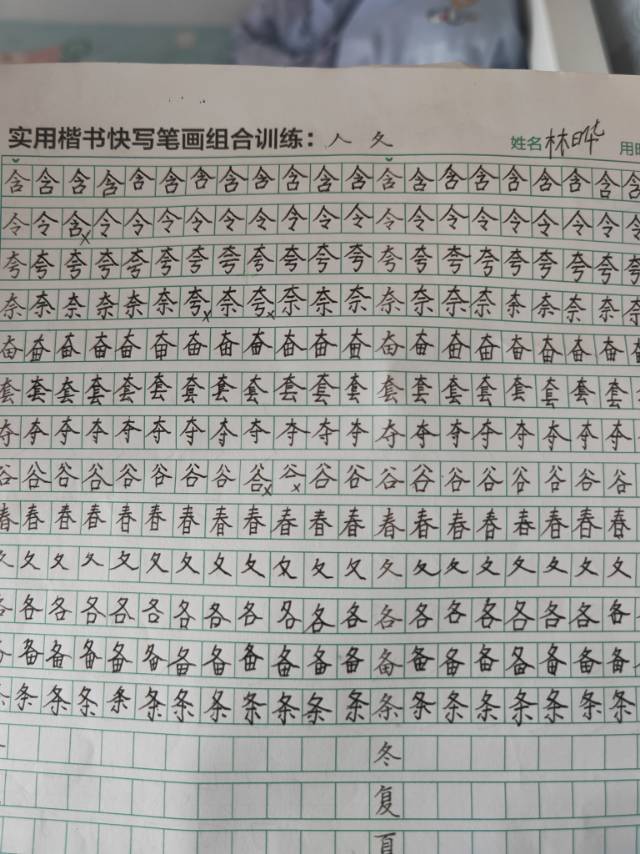 实用楷书快写笔画组合训练：人 夂 姓名 林晔 用时
含含含含含含含含含含含含含含含含含含含含含
令令含×令令令令令令令令令令令令令令令令令令
夸夸夸夸夸夸夸夸夸夸夸夸夸夸夸夸夸夸夸夸夸
奈奈奈奈奈奈夸×奈夸×奈奈奈奈奈奈奈奈奈奈奈奈
奋奋奋奋奋奋奋奋奋奋奋奋奋奋奋奋奋奋奋奋奋
套套套套套套套套套套套套套套套套套套套套
夺夺夺夺夺夺夺夺夺夺夺夺夺夺夺夺夺夺夺夺
谷谷谷谷谷谷谷谷谷×谷×谷谷谷谷谷谷谷谷谷谷
春春春春春春春春春春春春春春春春春春春春
夂夂夂夂夂夂夂夂夂夂夂夂夂夂夂夂夂夂夂夂
各各各各各各各各各各各各各各各各各各各各
备备备备备备备备备备备备备备备备备备备备
条条条条条条条条条条条条条条条条条条条条
冬
复
夏